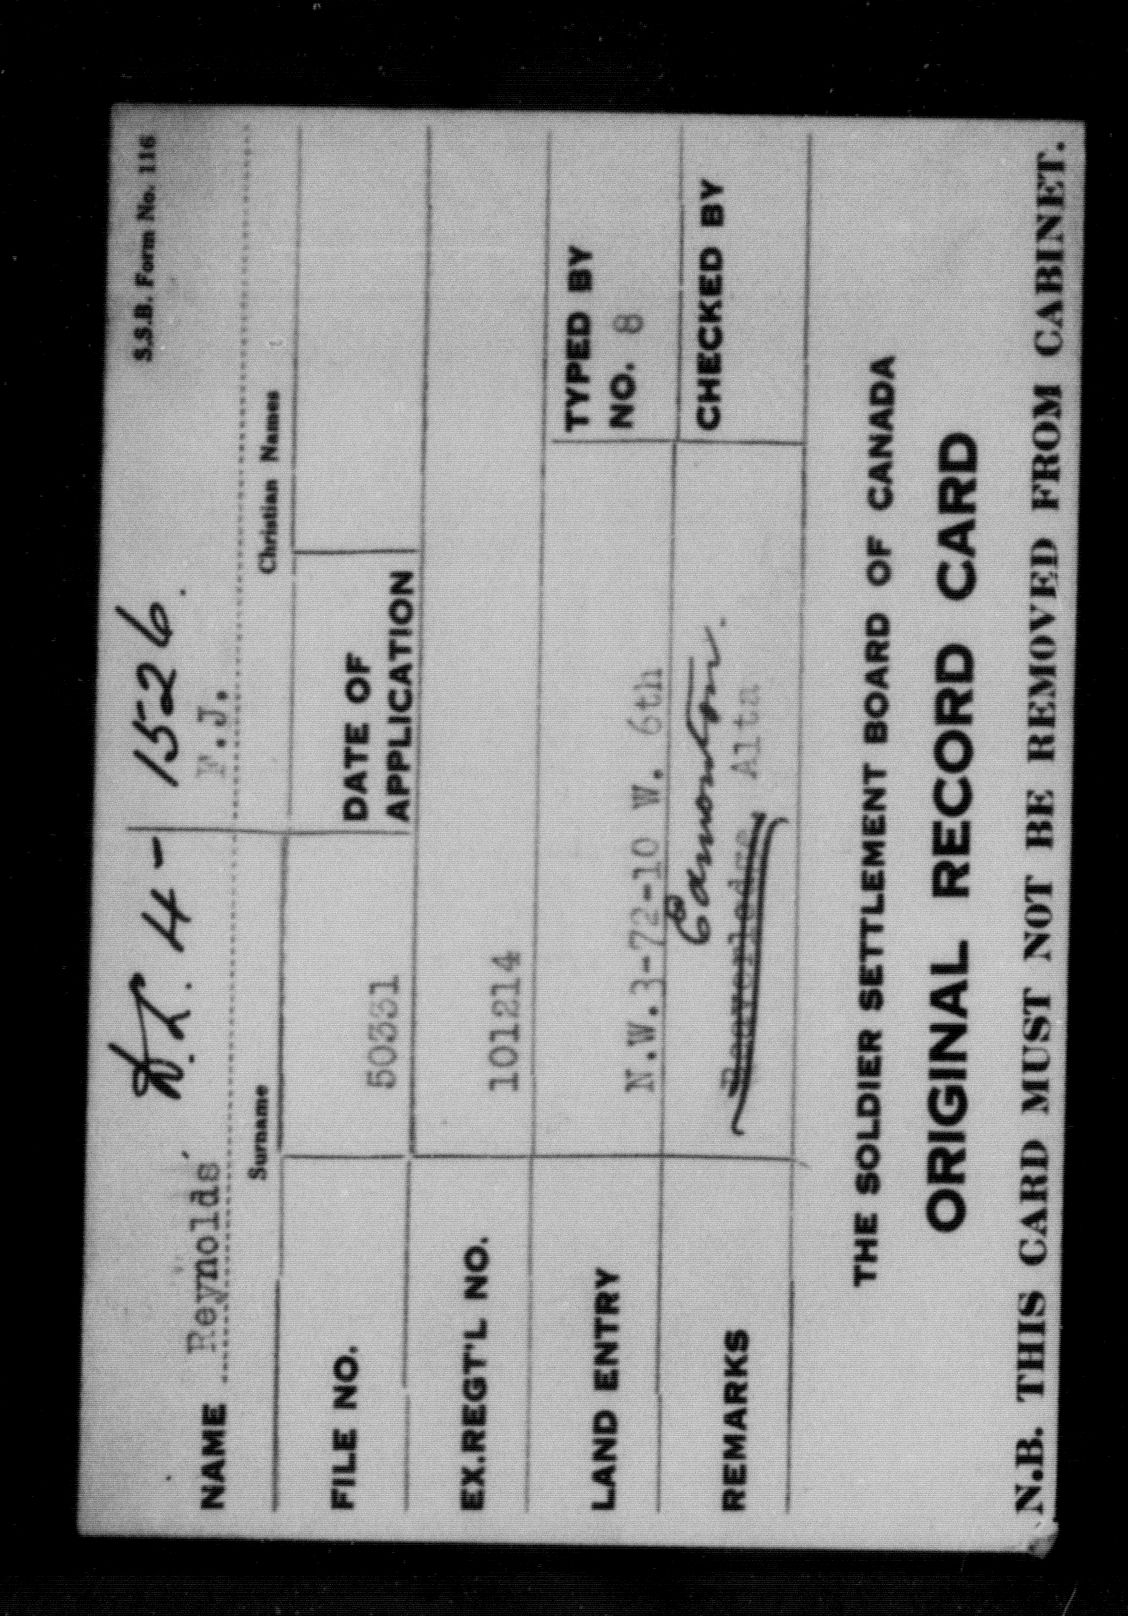 S.S.B. Form No. 116
D.L. 4 - 1526.
NAME Reynolds F.J.
Surname Christian Names
FILE NO. 50331 DATE OF APPLICATION
EX.REGT'L NO. 101214
LAND ENTRY N.W.3-72-10 W. 6th TYPED BY NO. 8
Edmonton.
REMARKS Beaverlodge, Alta CHECKED BY
THE SOLDIER SETTLEMENT BOARD OF CANADA
ORIGINAL RECORD CARD
N.B. THIS CARD MUST NOT BE REMOVED FROM CABINET.